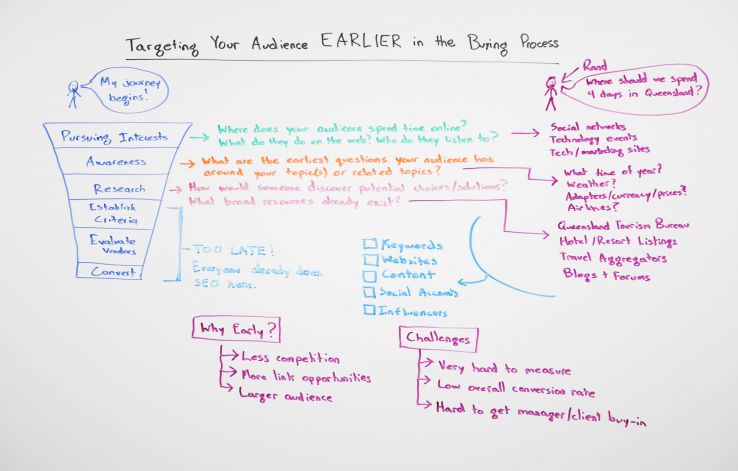 Targeting Your Audience EARLIER in the Buying Process
My journey
begins!
Rand
Where should we spend
4 days in Queensland?
Pursuing Interests
Where does your audience spend time online?
What do they do on the web? Who do they listen to?
Social networks
Technology events
Tech/marketing sites
Awareness
What are the earliest questions your audience has
around your topic(s) or related topics?
What time of year?
Weather?
Adapters/currency/prices?
Airlines?
Research
How would someone discover potential choices/solutions?
What broad resources already exist?
Queensland Tourism Bureau
Hotel/Resort Listings
Travel Aggregators
Blogs + Forums
Establish
Criteria
Evaluate
Vendors
Convert
TOO LATE!
Everyone already does
SEO here.
Keywords
Websites
Content
Social Accounts
Influencers
Why Early?
Less competition
More link opportunities
Larger audience
Challenges
Very hard to measure
Low overall conversion rate
Hard to get manager/client buy-in